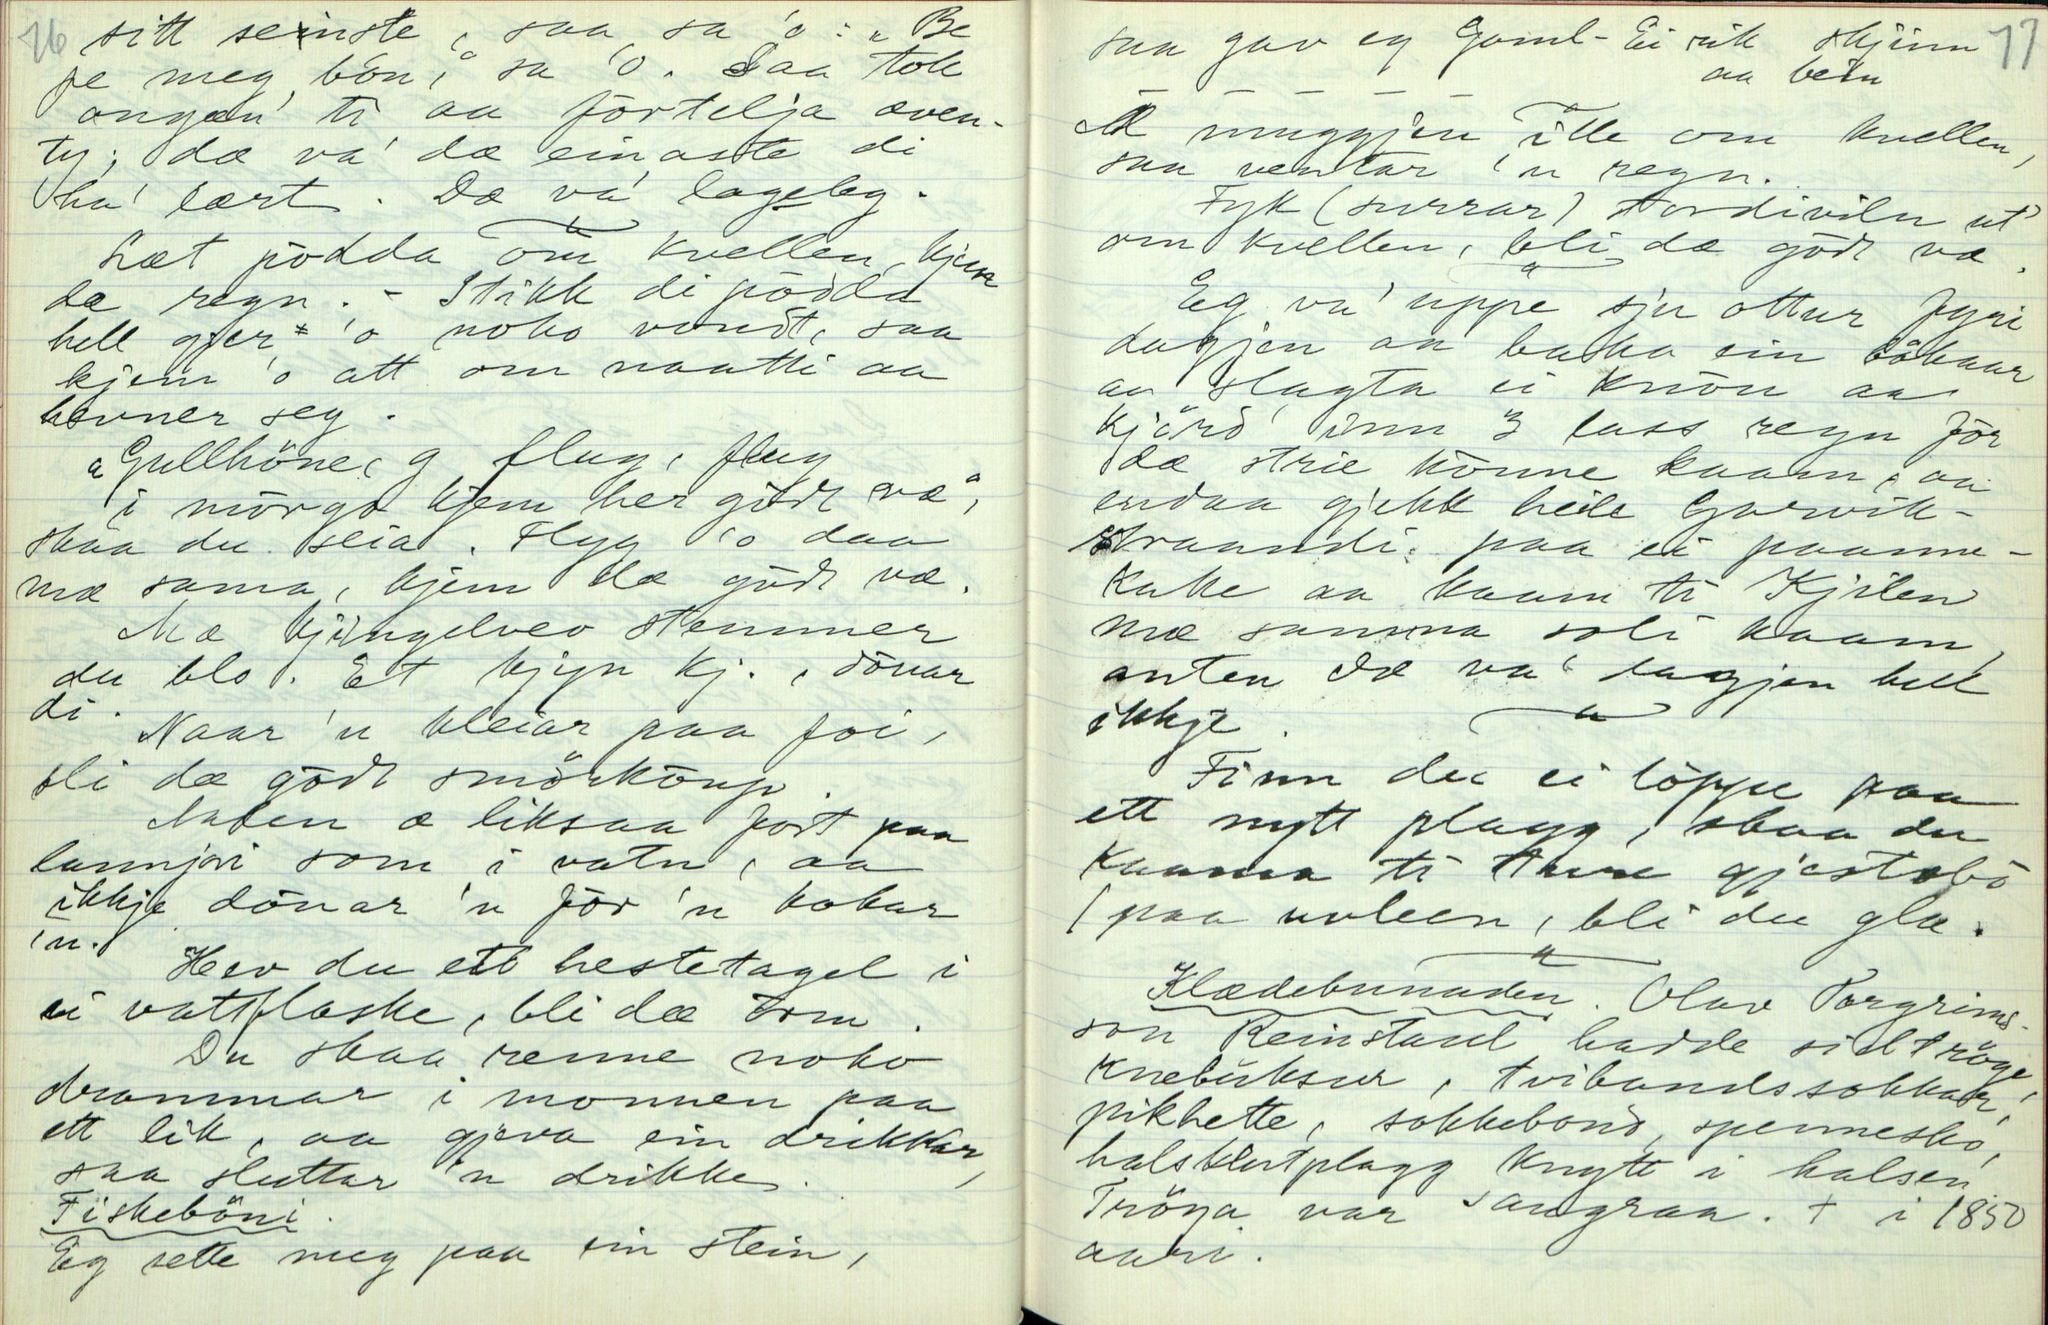 16
sitt seinste, saa sa 'o: "Be
pe meg, bön", sa 'o. Saa tok
ongan' ti aa förtelja æven-
ty; dæ va' dæ einaste di
ha' lært. Dæ va' lageleg.
Læt pödda om kvellen, kjem
dæ regn. - Stikk di pödda
hell gjer 'o noko vondt, saa
kjem 'o att om naatti aa
hevner seg.
"Gullhöne, g flug, flug
i mörgo kjem her gödt væ",
skaa du seia. Flyg 'o daa
mæ sama, kjem dæ gödt væ.
Mæ kjingelvev stemmer
du blo. Et kjyn kj., dönar
di.
Naar 'n kleiar paa foi,
bli dæ gödt smörköup.
Naden æ liksaa fort paa
lannjöri som i vatn, aa
ikkje dönar 'n för 'n kokar
'n.
Hev du ett hestetagel i
ei vattflaske, bli dæ orm.
Du skaa renne noko
drammar i monnen paa
ett lik, aa gjeva ein drikkar,
saa sluttar 'n drikke.
Fiskeböni.
Eg sette meg paa ein stein,
17
saa gav eg Gaml-Eirik skjinn
aa bein
Æ muggjen ille om kvellen,
saa ventar 'n regn.
Fyk (surrar) tordiviln ut
om kvellen, bli dæ gödt væ.
Eg va' uppe sju ottur fyri
dagjen aa baka ein bökaar
aa slagta ei knön aa
kjörd' inn 3 lass regn för
dæ strie könne kaam, aa
endaa gjekk heile Garvik-
straandi paa ei paanne-
kake aa kaam ti Kjilen
mæ samma soli kaam,
anten dæ va' dagjen hell
ikkje.
Finn du ei löppe paa
ett nytt plagg, skaa du
kaama ti ture gjestebö
(paa uvleen, bli du glæ.
Klædebunaden. Olav Torgrims-
son Reinstaul hadde sidtröge,
knebuksur, tvibandssokkar,
pikhette, sokkebond, spennesko,
halsklutplagg knytt i halsen.
Tröya var sangraa. + i 1850
aari.